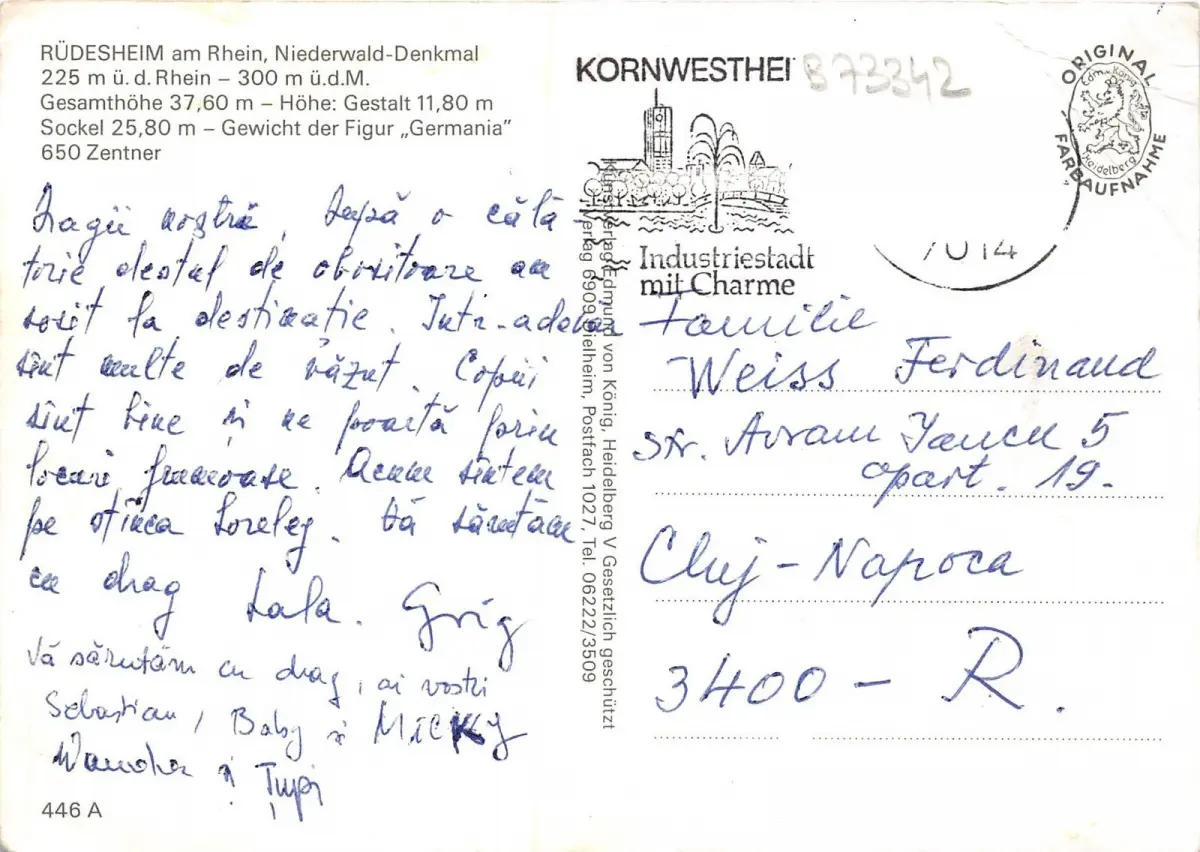 RÜDESHEIM am Rhein, Niederwald-Denkmal
225 m ü. d. Rhein – 300 m ü.d.M.
Gesamthöhe 37,60 m – Höhe: Gestalt 11,80 m
Sockel 25,80 m – Gewicht der Figur „Germania"
650 Zentner
Dragii noștri, După o călă-
torie destul de obositoare am
sosit la destinație. Într-adevăr
sînt multe de văzut. Copiii
sînt bine și ne poartă prin
locuri frumoase. Acum sîntem
pe stînca Loreley. Vă sărutăm
cu drag Lala. Grig
Vă sărutăm cu drag, ai voștri
Sebastian, Baby și MICKY
Wanda și Țupi
446 A
Kunstverlag Edmund von König, Heidelberg V Gesetzlich geschützt
Verlag 6909 Dielheim, Postfach 1027, Tel. 06222/3509
KORNWESTHEI
B73342
Industriestadt
mit Charme
7014
ORIGINAL
Edm. v. König
Heidelberg
FARBAUFNAHME
Familie
Weiss Ferdinand
str. Avram Iancu 5
apart. 19.
Cluj-Napoca
3400 – R.